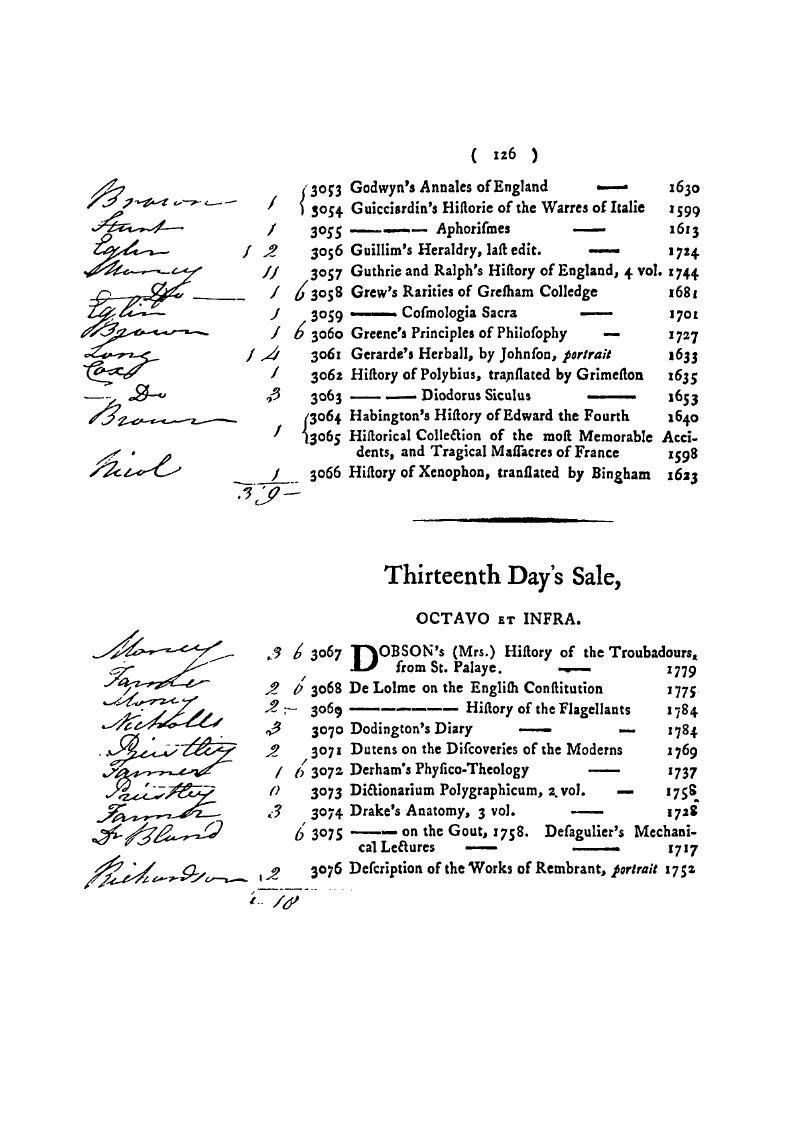 ( 126 )
Brown 1 { 3053 Godwyn's Annales of England — 1630
3054 Guicciardin's Hiſtorie of the Warres of Italie 1599
1 3055 ——— Aphoriſmes — 1613
Eglin 1 2 3056 Guillim's Heraldry, laſt edit. — 1724
Money 11 3057 Guthrie and Ralph's Hiſtory of England, 4 vol. 1744
— Do — 1 6 3058 Grew's Rarities of Greſham Colledge 1681
Eglin 1 3059 —— Coſmologia Sacra — 1701
Brown 1 6 3060 Greene's Principles of Philoſophy — 1727
Long 1 4 3061 Gerarde's Herball, by Johnſon, portrait 1633
Cox 1 3062 Hiſtory of Polybius, tranſlated by Grimeſton 1635
—, Do 3 3063 — — Diodorus Siculus — 1653
Brown 1 { 3064 Habington's Hiſtory of Edward the Fourth 1640
3065 Hiſtorical Collection of the moſt Memorable Acci-
dents, and Tragical Maſſacres of France 1598
Nicol 1 3066 Hiſtory of Xenophon, tranſlated by Bingham 1623
3 9 —
Thirteenth Day's Sale,
OCTAVO ET INFRA.
Money 3 6 3067 DOBSON's (Mrs.) Hiſtory of the Troubadours,
from St. Palaye. — 1779
Farmer 2 6 3068 De Lolme on the Engliſh Conſtitution 1775
Money 2 — 3069 ———— Hiſtory of the Flagellants 1784
Nicholls 3 3070 Dodington's Diary — — 1784
Priestley 2 3071 Dutens on the Diſcoveries of the Moderns 1769
Farmer 1 6 3072 Derham's Phyſico-Theology — 1737
Priestley 3073 Dictionarium Polygraphicum, 2 vol. — 1758
Farmer 3 3074 Drake's Anatomy, 3 vol. — 1728
Dr Bland 6 3075 —— on the Gout, 1758. Deſagulier's Mechani-
cal Lectures — — 1717
Richardson 2 3076 Deſcription of the Works of Rembrant, portrait 1752
18